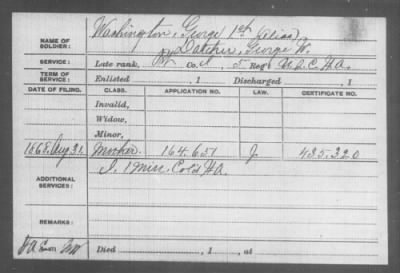 Washington, George 1st (alias)
NAME OF SOLDIER: Datcher, George W.
SERVICE: Late rank, Co. I, 5 Reg't U.S.C.H.A.
TERM OF SERVICE: Enlisted , 1 Discharged , 1
DATE OF FILING. CLASS. APPLICATION NO. LAW. CERTIFICATE NO.
Invalid,
Widow,
Minor,
1868 Aug 31. Mother. 164.651 J. 435.320
ADDITIONAL SERVICES: I. 1 Miss. Col'd H.A.
REMARKS:
Died , 1 , at